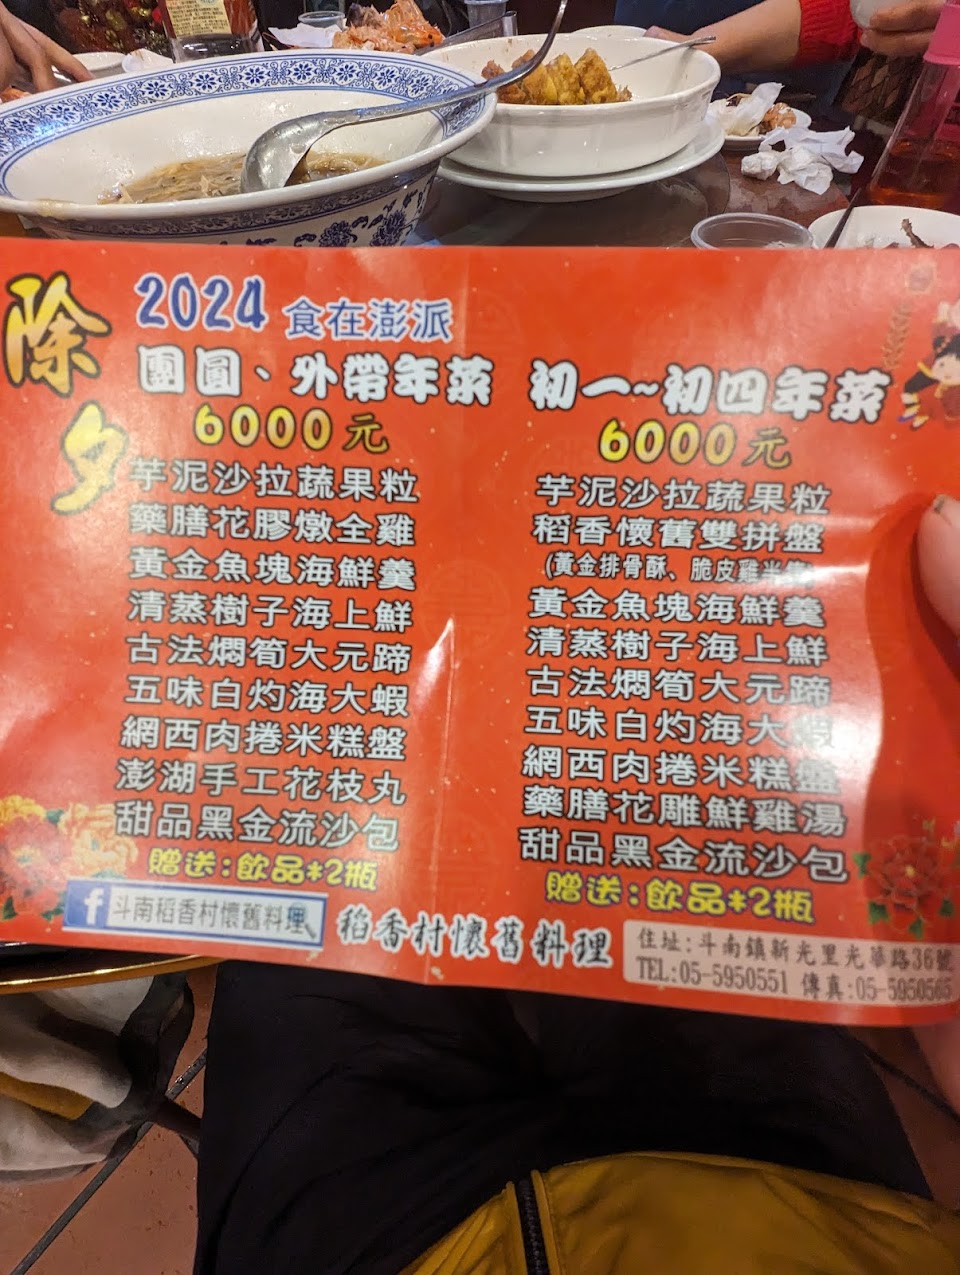 除夕
2024 食在澎派
團圓、外帶年菜
6000元
芋泥沙拉蔬果粒
藥膳花膠燉全雞
黃金魚塊海鮮羹
清蒸樹子海上鮮
古法燜筍大元蹄
五味白灼海大蝦
網西肉捲米糕盤
澎湖手工花枝丸
甜品黑金流沙包
贈送:飲品*2瓶
初一~初四年菜
6000元
芋泥沙拉蔬果粒
稻香懷舊雙拼盤
(黃金排骨酥、脆皮雞米
黃金魚塊海鮮羹
清蒸樹子海上鮮
古法燜筍大元蹄
五味白灼海大蝦
網西肉捲米糕盤
藥膳花雕鮮雞湯
甜品黑金流沙包
贈送:飲品*2瓶
f 斗南稻香村懷舊料理
稻香村懷舊料理
住址:斗南鎮新光里光華路36號
TEL:05-5950551 傳真:05-5950565